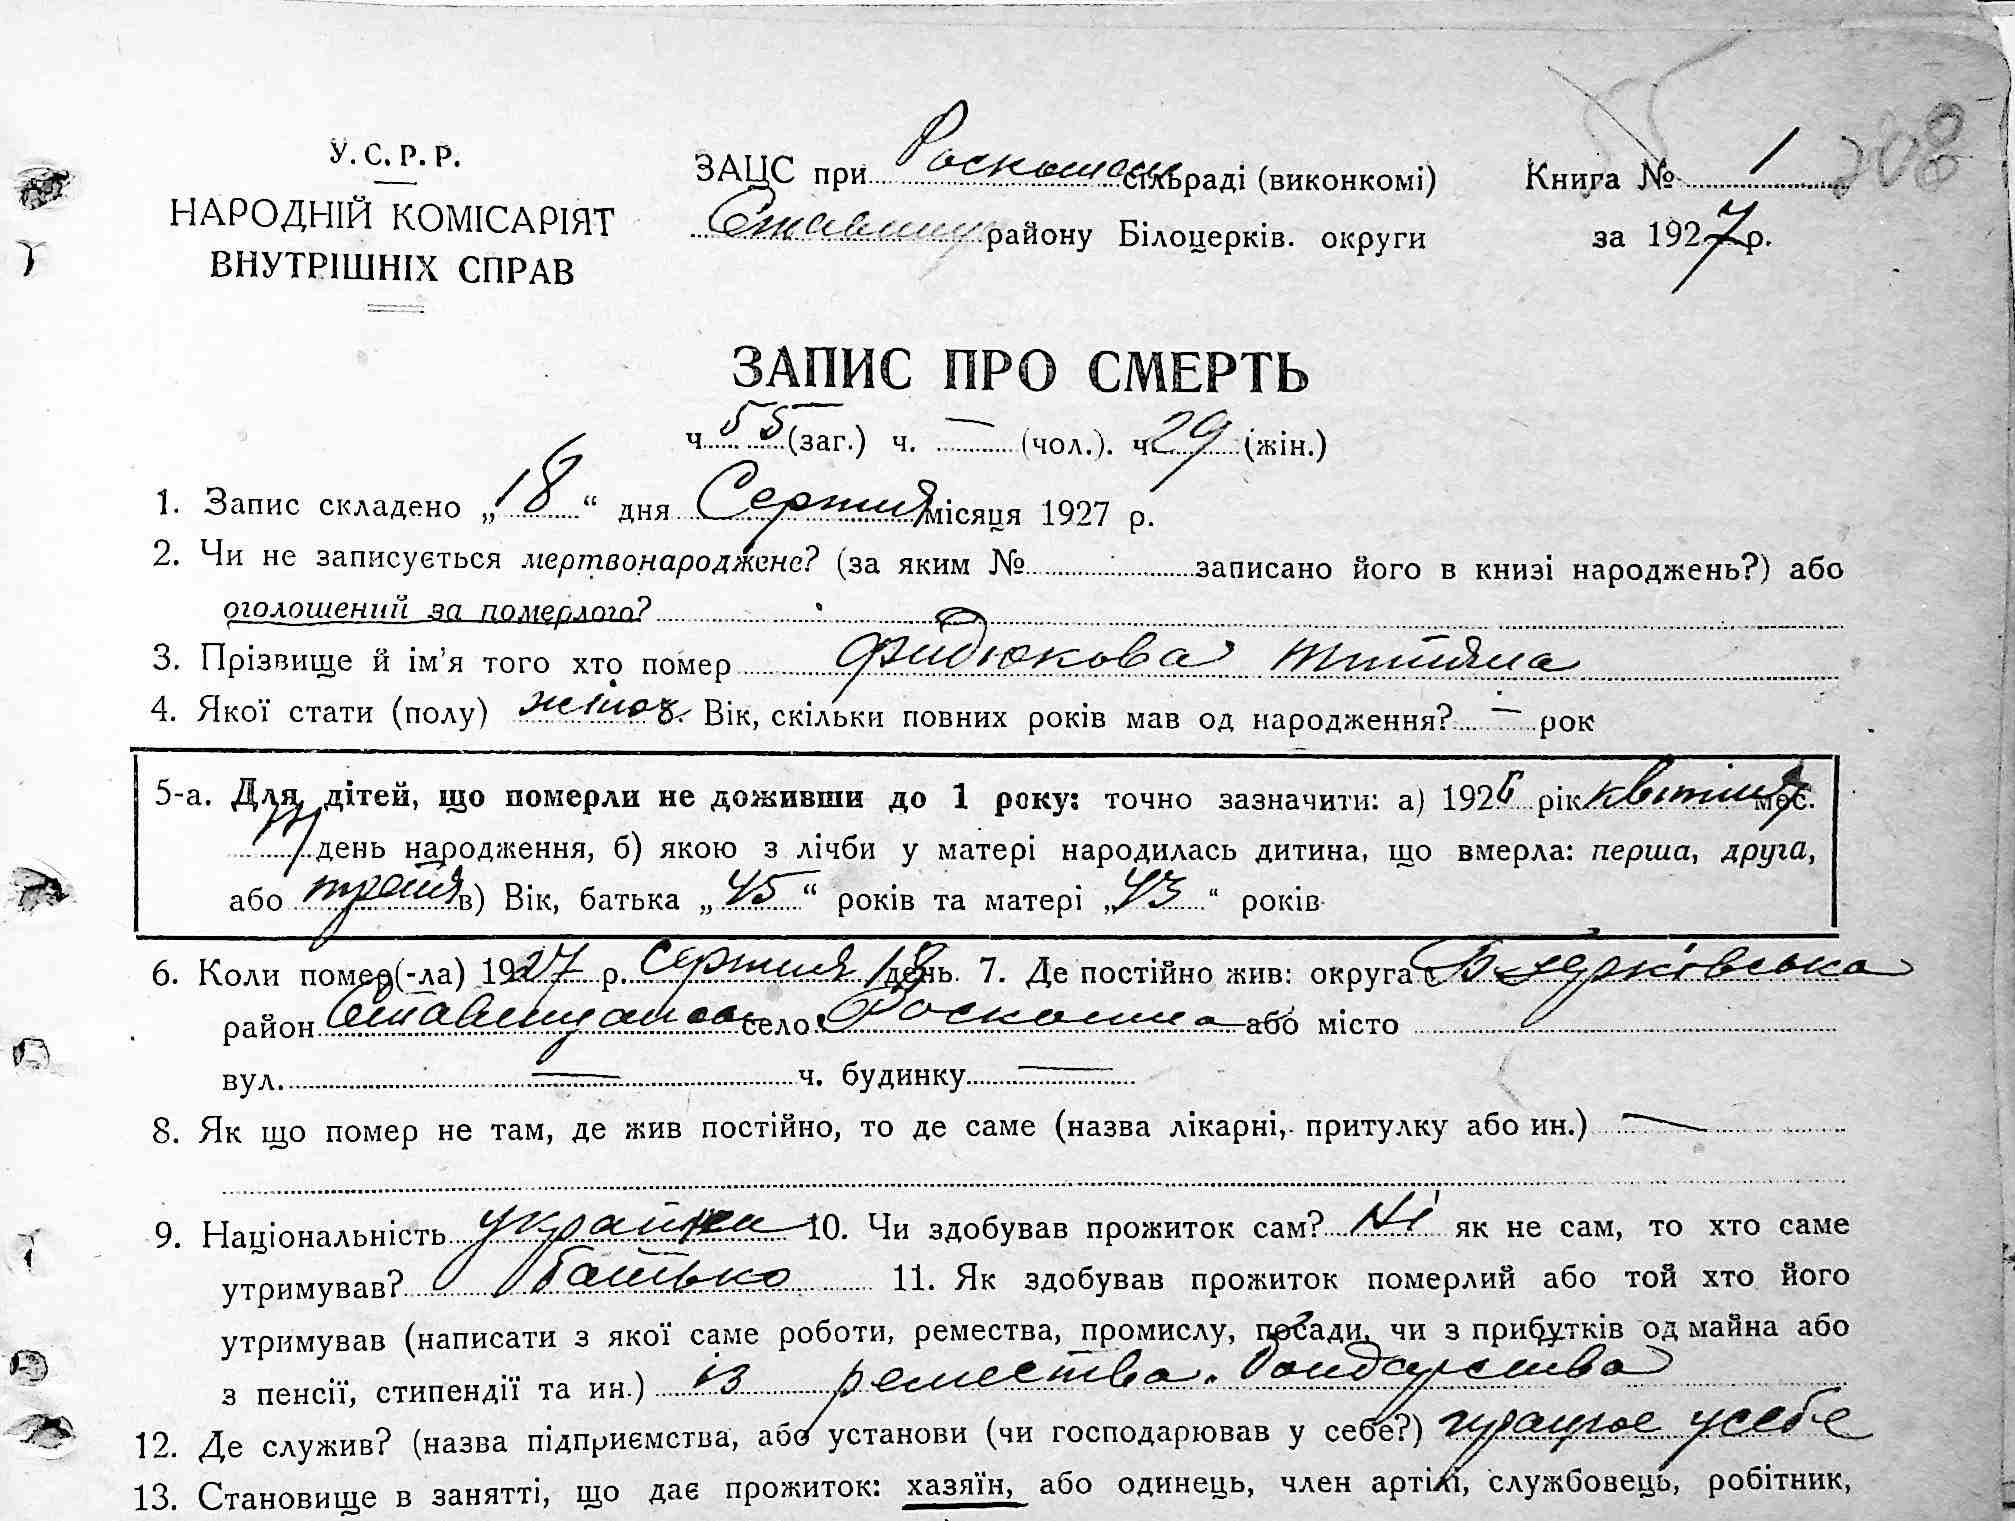 208
У. С. Р. Р.
НАРОДНІЙ КОМІСАРІЯТ
ВНУТРІШНІХ СПРАВ
ЗАЦС при Роскошен сільраді (виконкомі)
Ставищ району Білоцерків. округи
Книга № 1
за 1927 р.
ЗАПИС ПРО СМЕРТЬ
ч 55 (заг.) ч. — (чол.). ч 29 (жін.)
1. Запис складено „18“ дня Серпня місяця 1927 р.
2. Чи не записується мертвонароджене? (за яким № записано його в книзі народжень?) або
оголошений за померлого?
3. Прізвище й ім'я того хто помер Фидюкова Титяна
4. Якої стати (полу) жіноч. Вік, скільки повних років мав од народження? — рок
5-а. Для дітей, що померли не доживши до 1 року: точно зазначити: а) 192 рік квітня мес.
день народження, б) якою з лічби у матері народилась дитина, що вмерла: перша, друга,
або третя в) Вік, батька „45“ років та матері „43“ років
6. Коли помер(-ла) 1927 р. серпня 18 день. 7. Де постійно жив: округа Б-церківська
район Ставищанськ село Роскошна або місто
вул. — ч. будинку —
8. Як що помер не там, де жив постійно, то де саме (назва лікарні, притулку або ин.) —
9. Національність українка 10. Чи здобував прожиток сам? Ні як не сам, то хто саме
утримував? батько 11. Як здобував прожиток померлий або той хто його
утримував (написати з якої саме роботи, ремества, промислу, посади, чи з прибутків од майна або
з пенсії, стипендії та ин.) із ремества. бондарства
12. Де служив? (назва підприємства, або установи (чи господарював у себе?) працює у себе
13. Становище в занятті, що дає прожиток: хазяїн, або одинець, член артілі, службовець, робітник,